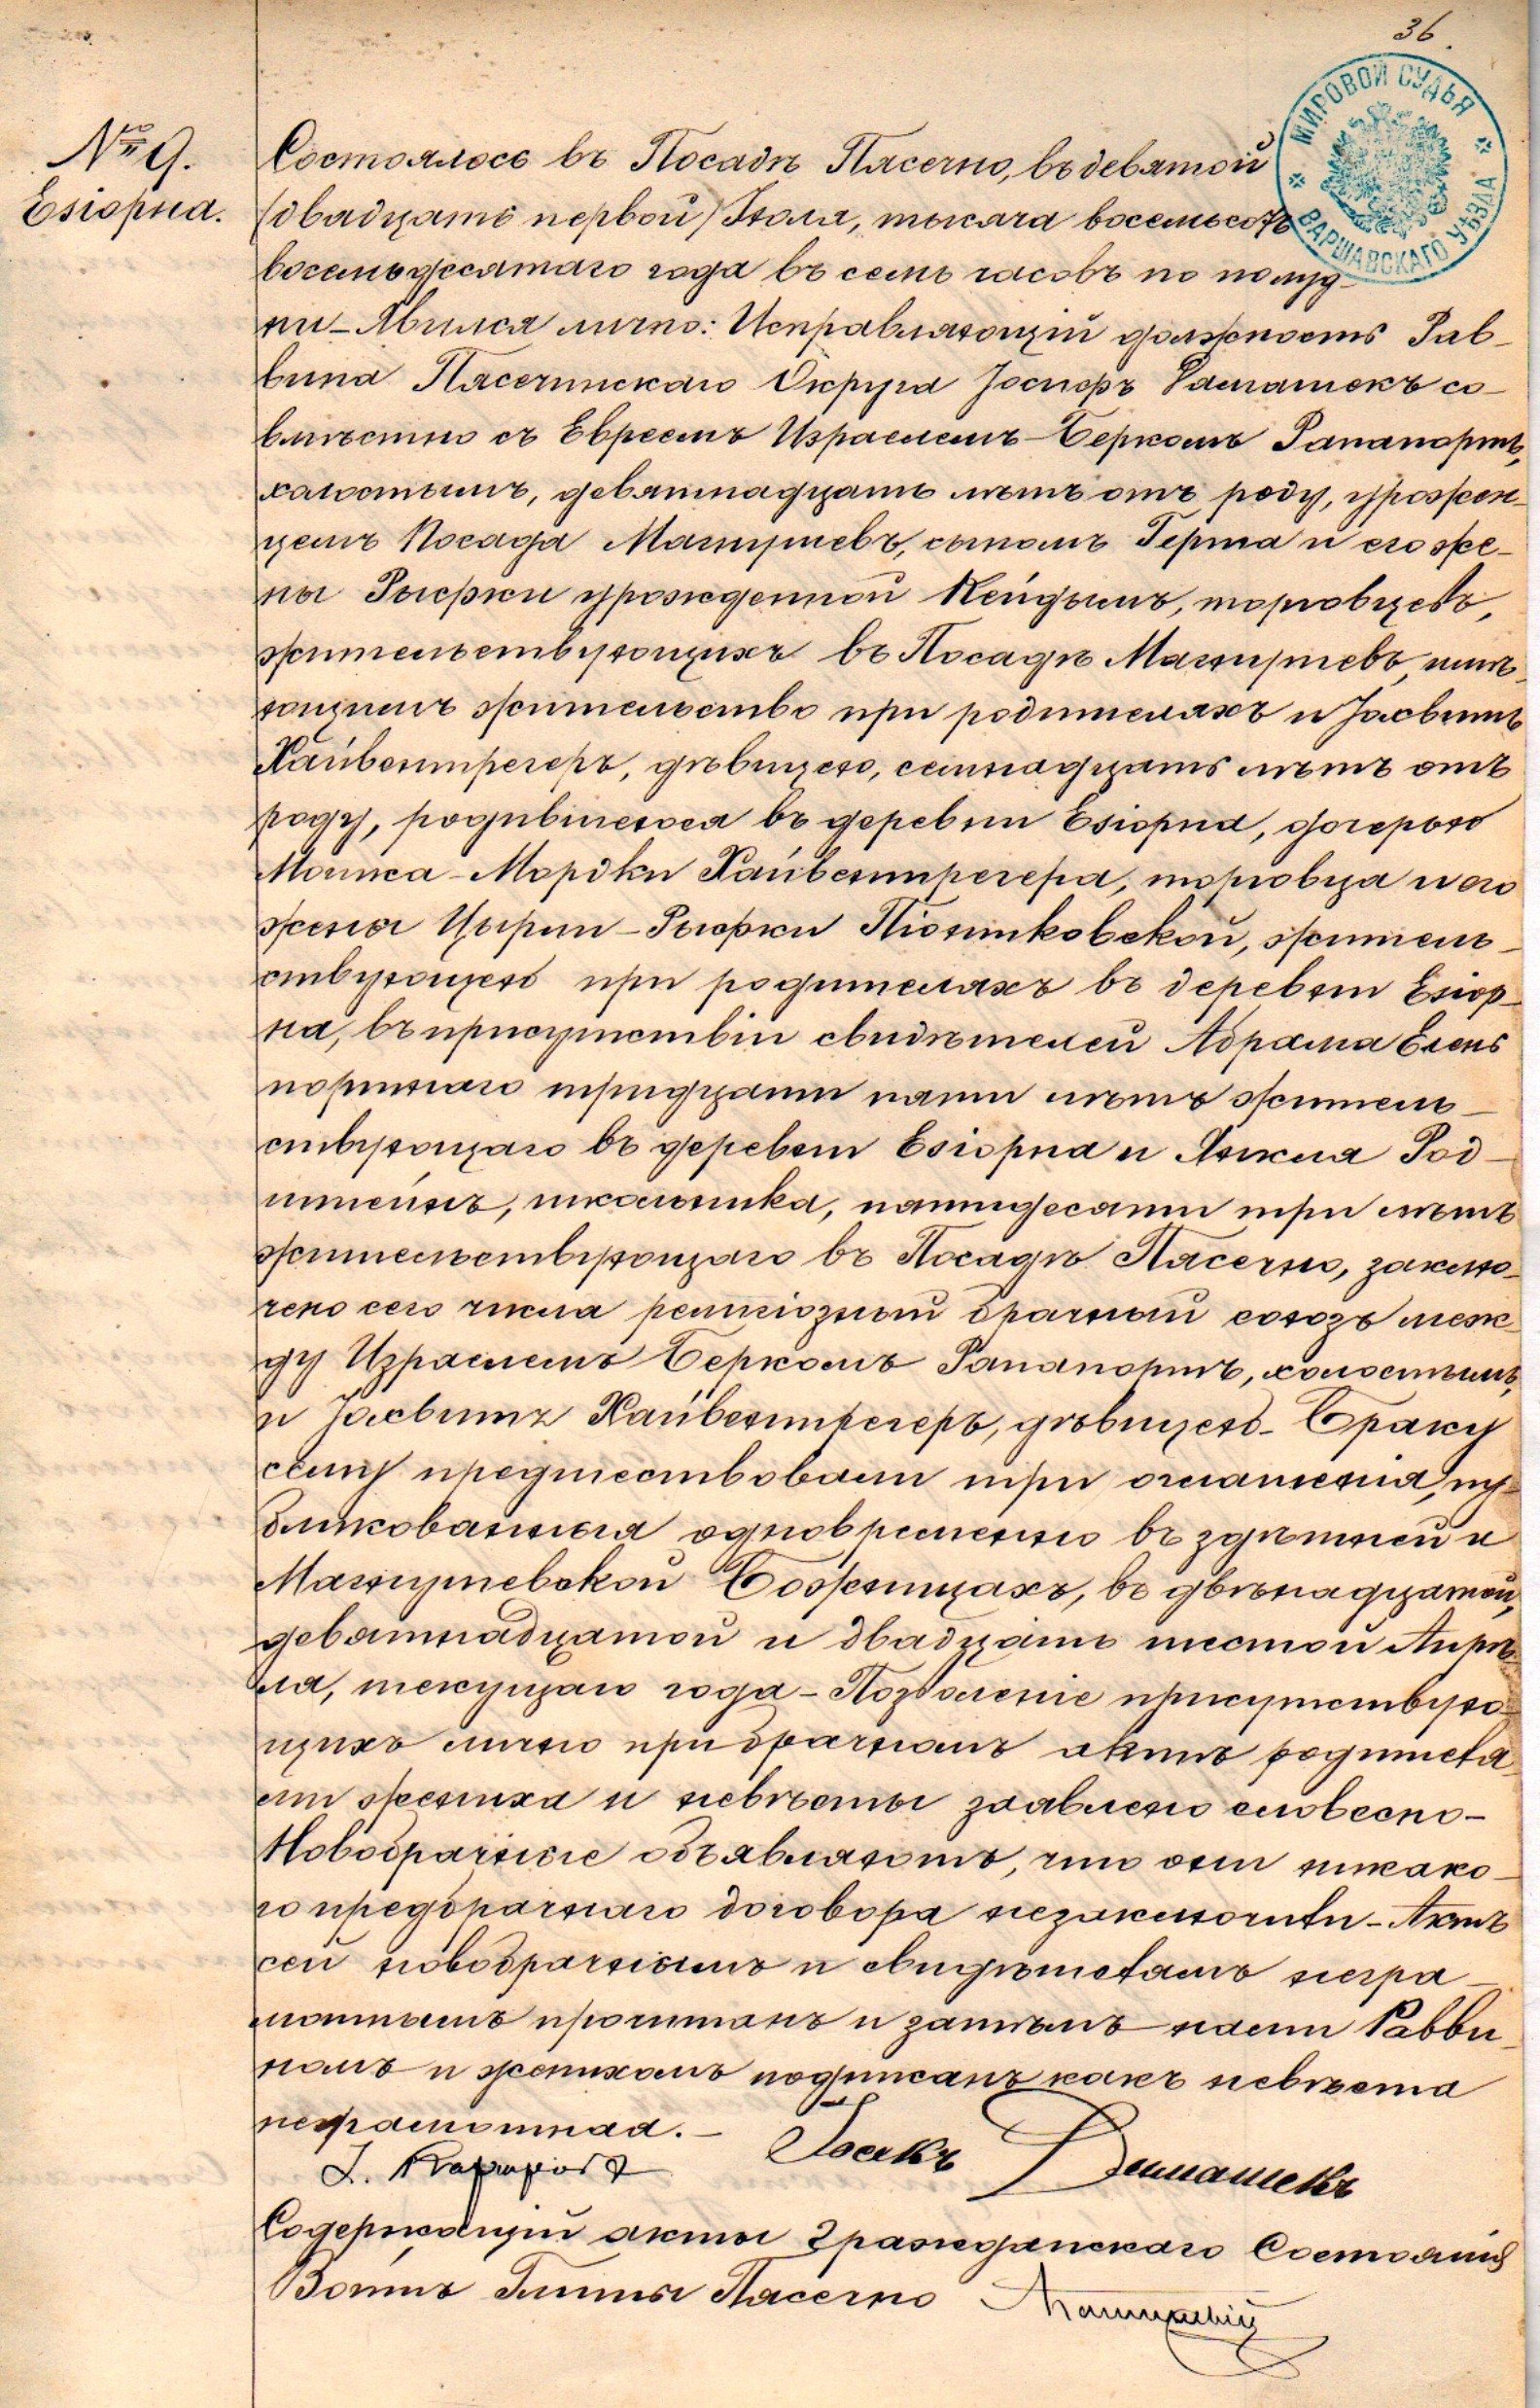 36.
МИРОВОЙ СУДЬЯ
ВАРШАВСКАГО УѢЗДА
№ 9.
Езіорна.
Состоялось въ Посадѣ Пясечно, въ девятой
(двадцать первой) Іюля, тысяча восемьсотъ
восемьдесятаго года въ семь часовъ по полуд-
ни - Явился лично: Исправляющій должность Рав-
вина Пясечинскаго Округа Далматекъ со-
вмѣстно съ Евреемъ Израелемъ-Беркомъ Рапапортъ,
халостымъ, девятнадцать лѣтъ отъ роду, урожен-
цемъ Посада Магнушевъ, сыномъ Герша и его же-
ны Рыфки урожденной Нейдымъ, торговцевъ,
жительствующихъ въ Посадѣ Магнушевъ, имѣ-
ющимъ жительство при родителяхъ и
Хайвентрегеръ, дѣвицею, семнадцать лѣтъ отъ
роду, родившеюся въ деревни Езіорна, дочерью
Мошка-Мордки Хайвентрегера, торговца и его
жены Цырли-Рыфки Піонтковской, житель-
ствующею при родителяхъ въ деревни Езіор-
на, въ присутствіи свидѣтелей Абрама
тридцати пяти лѣтъ житель-
ствующаго въ деревни Езіорна и Янкла Род-
штейнъ, школьника, пятидесяти три лѣтъ
жительствующаго въ Посадѣ Пясечно, заклю-
чено сего числа религіозный брачный союзъ меж-
ду Израелемъ Беркомъ Рапапортъ, холостымъ,
и Хайвентрегеръ, дѣвицею - Браку
сему предшествовали три оглашенія, пу-
бликованныя одновременно въ здѣшней и
Магнушевской Божницахъ, въ двѣнадцатой,
девятнадцатой и двадцать шестой Апрѣ-
ля, текущаго года - Позволеніе присутствую-
щихъ лично при брачномъ актѣ родителя-
ми жениха и невѣсты заявлено словесно -
Новобрачные объявляютъ, что они никако-
го предбрачнаго договора незаключили - Актъ
сей новобрачнымъ и свидѣтелямъ негра-
мотнымъ прочитанъ и затѣмъ нами Равви-
номъ и женихомъ подписанъ какъ невѣста
неграмотная. -
Содержащій акты Гражданскаго Состоянія
Войтъ Гмины Пясечно